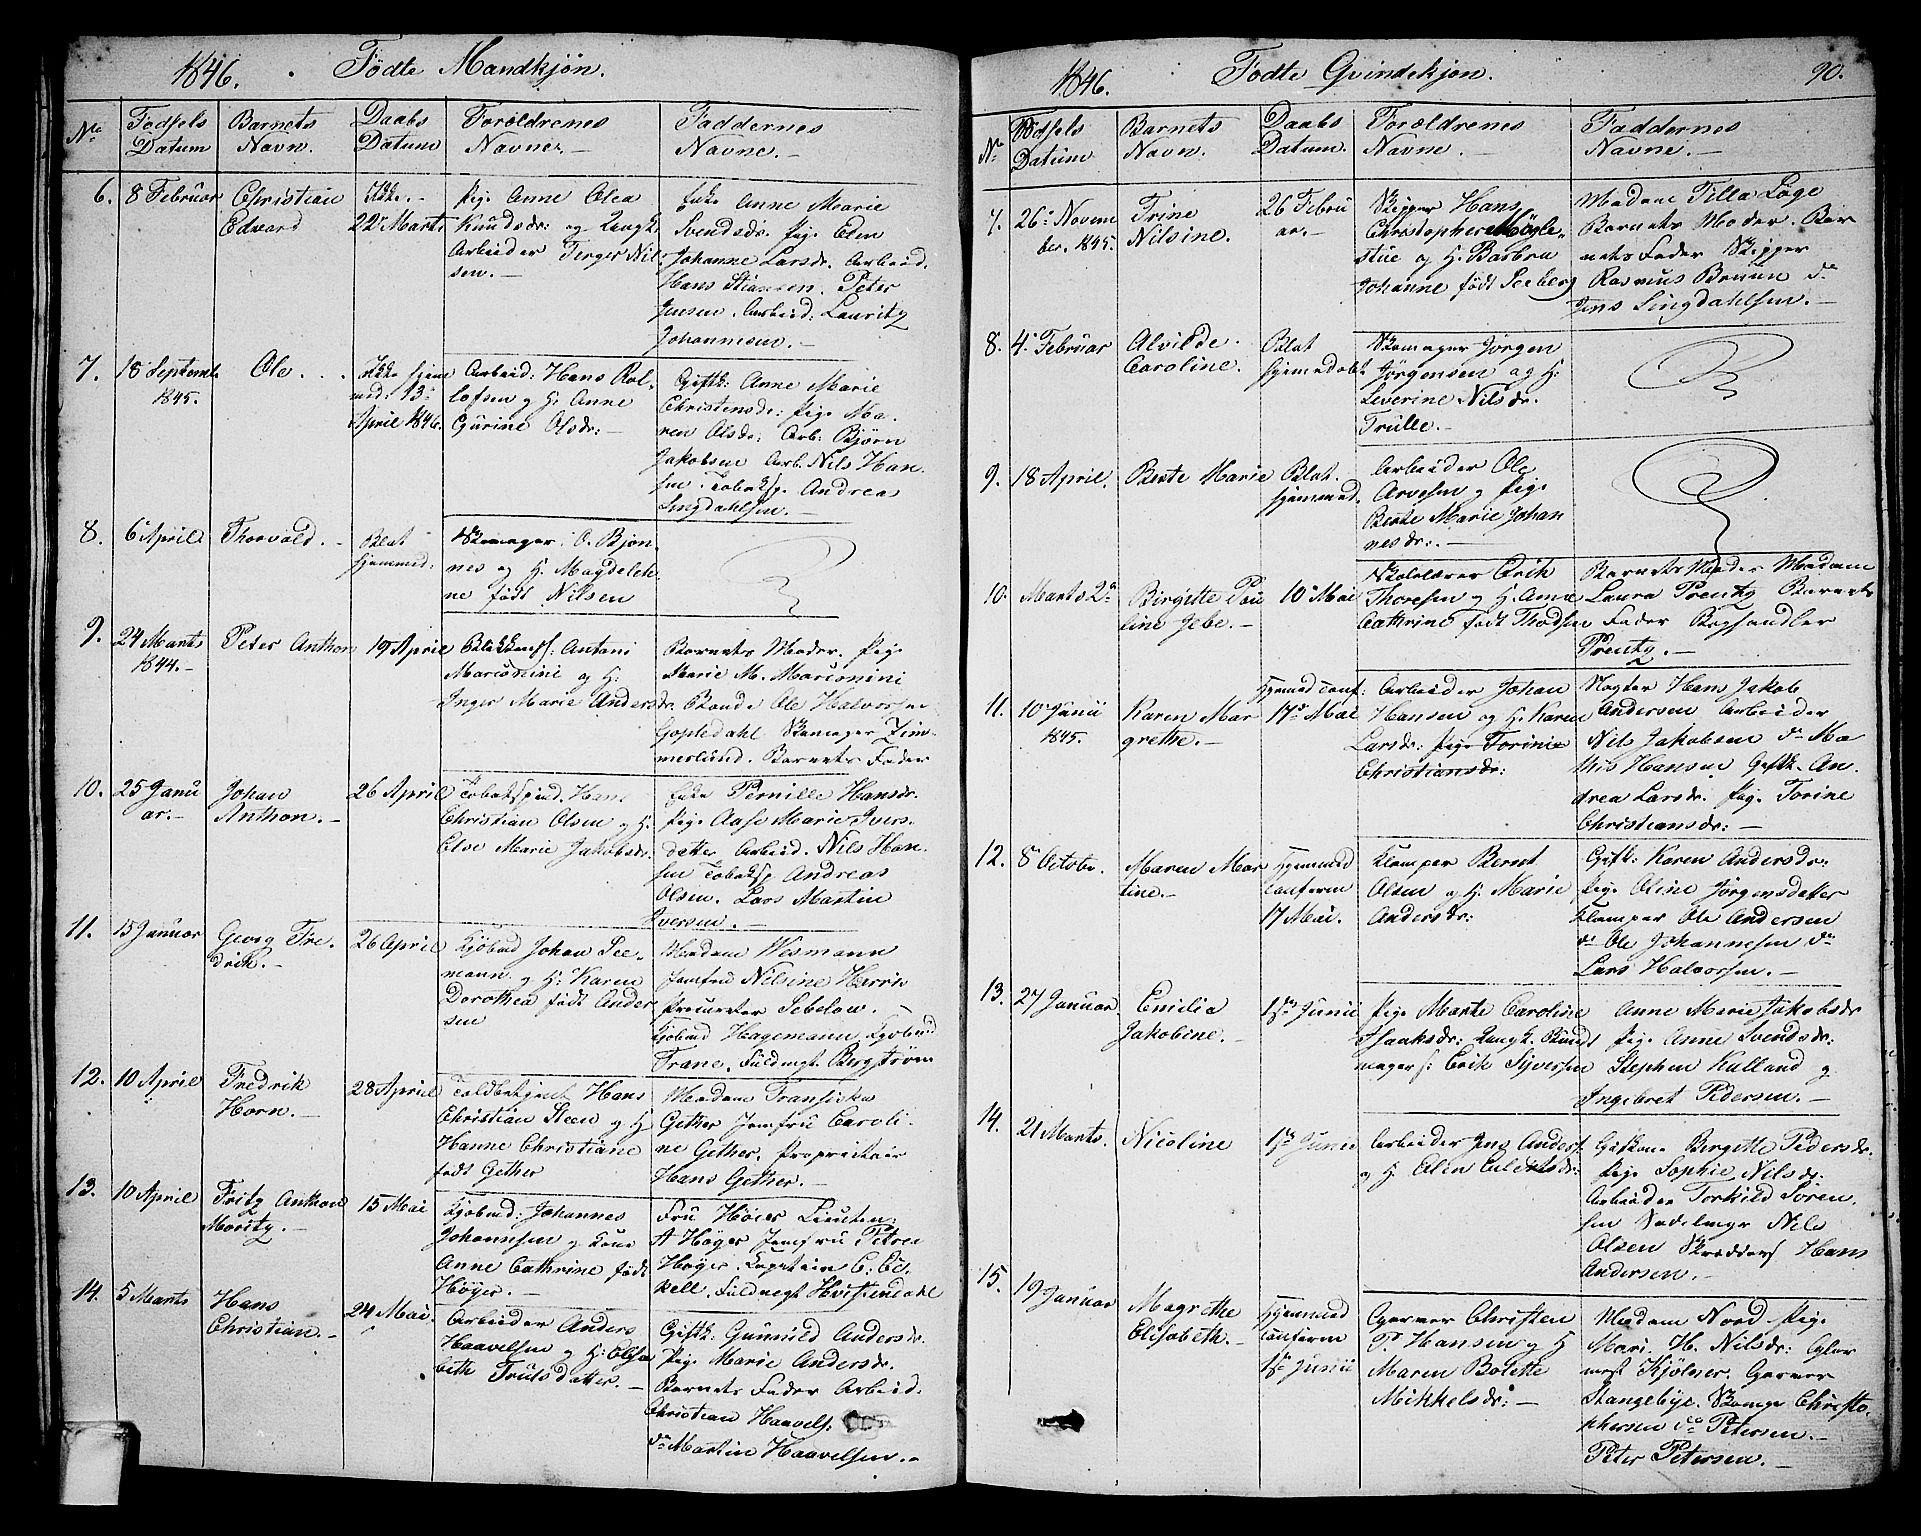 1846. Fødte Mandkjøn.
No
Fødsels Datum
Barnets Navn.
Daabs Datum
Forældrenes Navne.
Faddernes Navne.
6. 8 Februar
Christian
Edvard
Ikke.
22de Marts
Pige Anne Olea
Knudsdr: og Ungk.
Arbeider Terger Nil-
sen.
Enke Anne Marie
Svendsdr. Pige Elen
Johanne Larsdr. Arbeid.
Hans Stiansen. Peter
Jensen. Arbeid: Lauritz
Johannesen.
7. 18 Septemb.
1845.
Ole
Ikke hjem
med: 13
April 1846.
Arbeid: Hans Rol-
lofsen og H. Anne
Gurine Olsdr:
Giftk: Anne Marie
Christensdr: Pige Ma-
ren Olsdr: Arb: Bjørn
Jakobsen Arb. Nils Han-
sen. Tobaksp. Andreas
Lingdahlsen.
8. 6 April
Thorvald.
Blot
hjemmed:
Skomager O. Bjøn-
nes og H. Magdele
ne født Nilsen
9. 24 Marts
1844.
Peter Anthon
19 April
Blikkensl: Antoni
Marionini og H:
Inger Marie Andersdr.
Barnets Moder. Pige
Marie M. Marionini
Bonde Ole Halvorsen
Gopledahl Skomager Zim-
merlund. Barnets Fader
10. 25 Janu
ar.
Johan
Anthon.
26 April
Tobakspind. Hans
Christian Olsen og H.
Else Marie Jakobsdr.
Enke Pernille Hansdr.
Pige Aase Marie Ivers-
datter Arbeid. Nils Han-
sen Tobaksp Andreas
Olsen. Lars Martin
Iversen.
11. 15 Januar
Georg Fre-
drik.
26 April
Kjøbmd Johan See-
mann og H: Karen
Dorothea født Ander
sen
Madam Wesmann
Jomfru Nilsine Herris
Procurator Sebelow.
Kjøbmd Hagemann Kjøbmd
Trane. Fuldmgt. Bergstrøm
12. 10 April
Fredrik
Horn.
28 April
Toldbetjent Hans
Christian Steen og H
Hanne Christiane
født Gether
Madam Fransiska
Gether Jomfru Caroli-
ne Gether. Proprietair
Hans Gether.
13. 10 April
Fritz Anthon
Moritz.
15 Mai
Kjøbmd: Johannes
Johannsen og Kone
Anne Cathrine født
Høyer.
Fru Höier Lieuten:
A Høyer Jomfru Petrea
Høyer. Kaptein C.
kell. Fuldmegt Hvistendahl
14. 5 Marts
Hans
Christian.
24 Mai.
Arbeider Anders
Haavelsen og H: Elisa
beth Trulsdatter.
Giftk: Gunnild Andersdr.
Pige Marie Andersdr.
Barnets Fader Arbeid:
Christian Haavels.
do Martin Haavelsen.
1846. Fødte Qvindekjøn. 90.
No
Fødsels Datum
Barnets Navn.
Daabs Datum.
Forældrenes Navne.
Faddernes Navne.
7. 26 Novem
ber. 1845.
Trine
Nilsine.
26 Febru
ar.
Skipper Hans
Christopher Møgle-
stue og H. Barbra
Johanne født Seeberg
Madam Tilla Løge
Barnets Moder. Bar
nets Fader Skipper
Rasmus Bruun do
Jens Lingdahlsen.
8. 4 Februar
Alvilde
Caroline.
Blot
hjemmedøbt
Skomager Jørgen
Jörgensen og H:
Severine Nilsdr.
Trulle.
9. 18 April.
Berte Marie
Blot
hjemmed.
Arbeider Ole
Arvesen og Pige
Berte Marie Johan
nesdr:
10. Marts 2de
Birgitte Pau
line Jebe.
10 Mai
Skolelærer Erik
Thoresen og H. Anne
Cathrine født Thodsen
Barnets Moder Madam
Laura Prentz Barnets
Fader Boghandler
Prentz.
11. 10 Junii
1845.
Karen Mar
grethe.
Hjemmed conf:
17de Mai
Arbeider Johan
Hansen og H. Karen
Larsdr: Pige Torine
Christiansdr:
Andersen Arbeider
Nils Jakobsen do Ma
this Hansen Giftk. An-
drea Larsdr. Pige Torine
Christiansdr:
12. 8 Octobr.
Maren Mar
tine.
Hjemmed
conferm
17 Mai.
Klamper Bernt
Olsen og H. Marie
Andersdr:
Gift: Karen Andersdr:
Pige Oline Jørgensdatter
Klamper Ole Andersen
do Ole Johannesen do
Lars Halvorsen.
13. 27 Januar
Emilia
Jakobine.
1ste Junii
Pige Marte Caroline
Isaaksdr: Ungk. Bundt
mager s: Erik Sjversen
Anne Marie Jakobsdr
Pige Anne Svendsdr:
Stephen Kalland og
Ingebret Pedersen.
14. 21 Marts.
Nicoline
1ste Junii
Arbeider Jens Anders.
og H. Elen
Giftkone Bergitte Pedersdr.
Pige Sophie Nilsdr.
Arbeider Torkild Søren-
sen Sadelmgr Nils
Olsen Skrædders Hans
Andersen.
15. 19 Januar
Magrethe
Elisabeth.
Hjemmed
conferm
1ste Junii
Garver Christen
P. Hansen og H
Maren Bolette
Mikkelsdr:
Madam Nord Pige
Mari. H. Nilsdr: Glar
mest Kjølner. Garver
Stangebye. Skomgr Christo-
phersen do Petersen.
Peter Petersen.